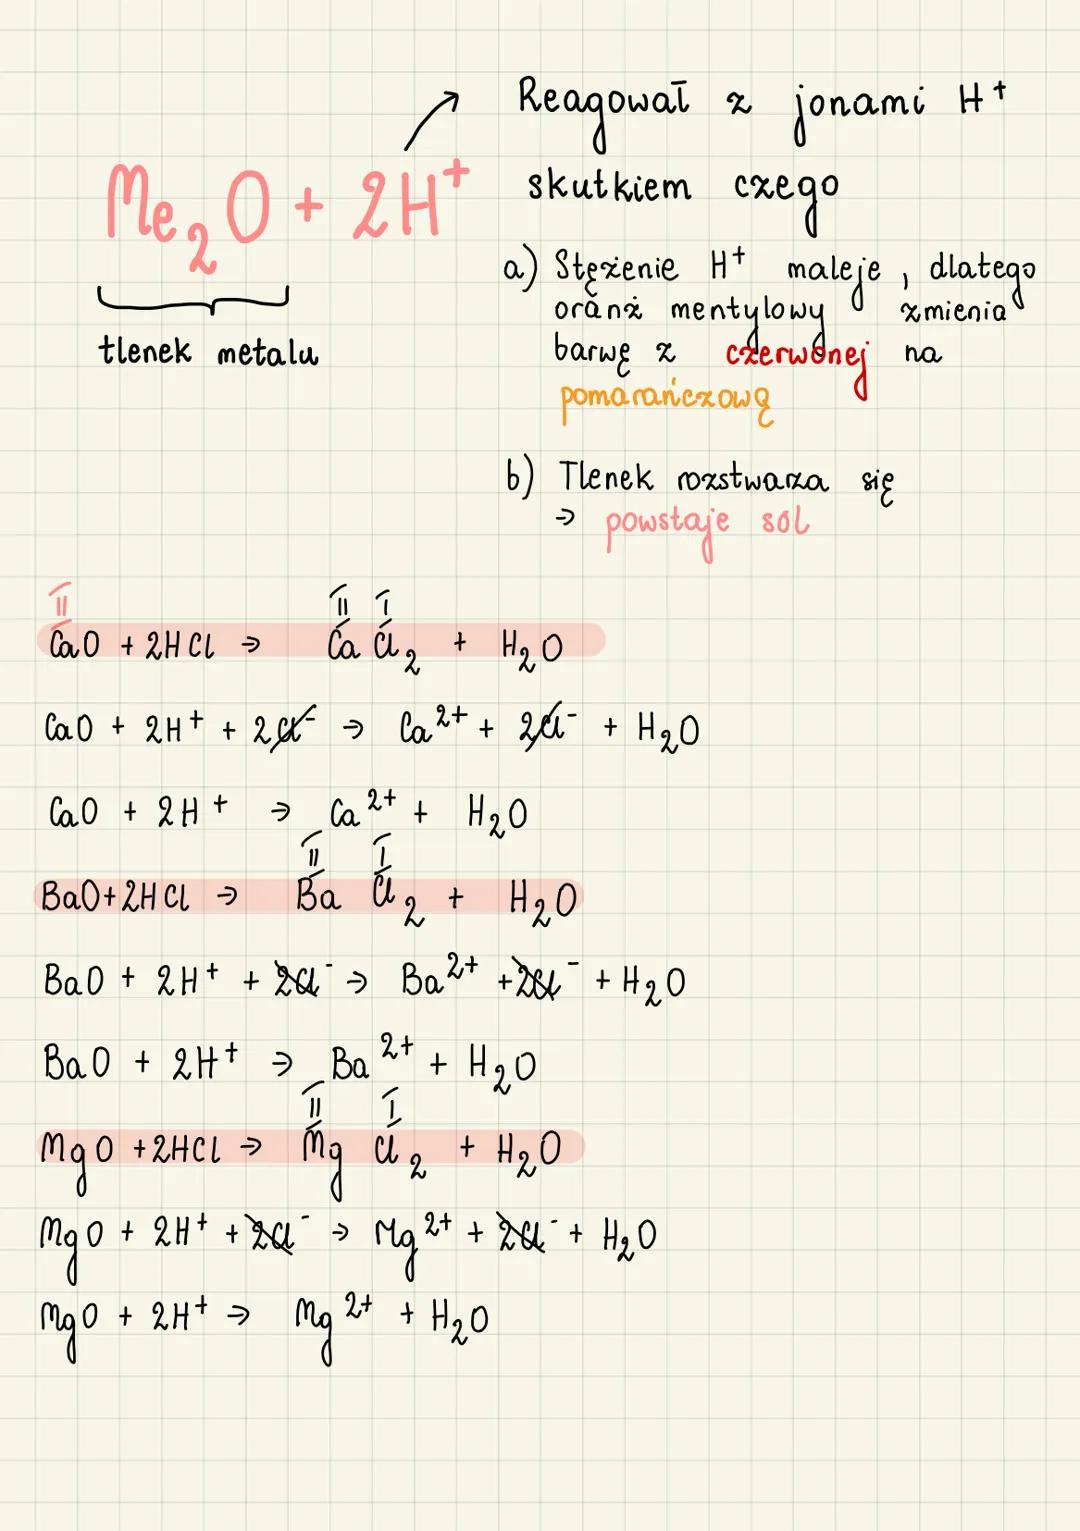 Reagował z jonami H⁺
skutkiem czego
Me₂O + 2H⁺
tlenek metalu
a) Stężenie H⁺ maleje, dlatego
oranż mentylowy zmienia
barwę z czerwonej na
pomarańczową
b) Tlenek rozstwarza się
→ powstaje sól
II II I
CaO + 2HCl → CaCl₂ + H₂O
CaO + 2H⁺ + 2Cl⁻ → Ca²⁺ + 2Cl⁻ + H₂O
CaO + 2H⁺ → Ca²⁺ + H₂O
II I
BaO + 2HCl → BaCl₂ + H₂O
BaO + 2H⁺ + 2Cl⁻ → Ba²⁺ + 2Cl⁻ + H₂O
BaO + 2H⁺ → Ba²⁺ + H₂O
II I
MgO + 2HCl → MgCl₂ + H₂O
MgO + 2H⁺ + 2Cl⁻ → Mg²⁺ + 2Cl⁻ + H₂O
MgO + 2H⁺ → Mg²⁺ + H₂O